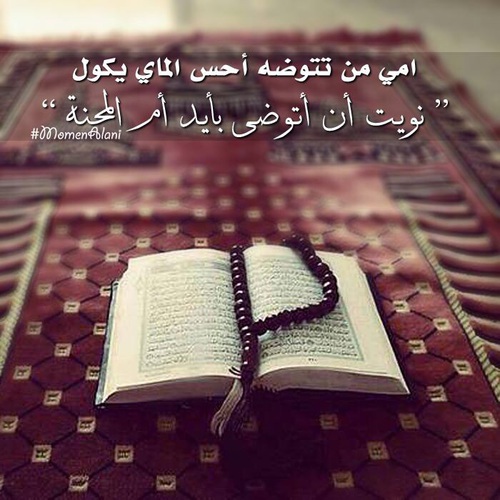 امي من تتوضه أحس الماي يكول
” نويت أن أتوضى بأيد أم المحنة “
#MomenAlani